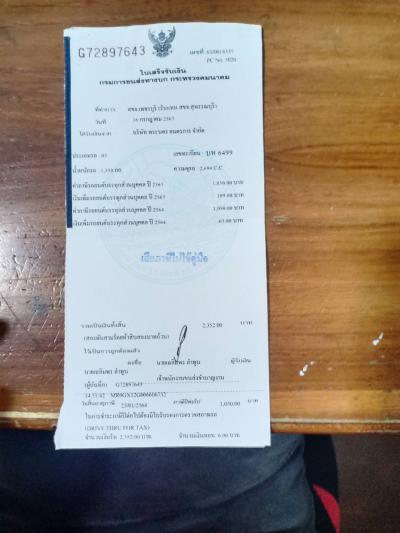 G72897643
เลขที่
PC No.
ใบเสร็จรับเงิน
กรมการขนส่งทางบก กระทรวงคมนาคม
ที่ทำการ สขจ.เพชรบุรี (รับแทน สขจ.สุพรรณบุรี)
วันที่ 16 กรกฎาคม 2563
ได้รับเงินจาก บริษัท พระนคร ยนตรการ จำกัด
ประเภทรถ
เลขทะเบียน บพ 6499
น้ำหนักรถ
ความจุรถ 2,494 C.C
ค่าภาษีรถยนต์บรรทุกส่วนบุคคล ปี 2563 1,050.00 บาท
เงินเพิ่มรถยนต์บรรทุกส่วนบุคคล ปี 2563 189.00 บาท
ค่าภาษีรถยนต์บรรทุกส่วนบุคคล ปี 2564 1,050.00 บาท
เงินเพิ่มรถยนต์บรรทุกส่วนบุคคล ปี 2564 63.00 บาท
เสียภาษีไม่ใช้คู่มือ
รวมเป็นเงินทั้งสิ้น 2,352.00 บาท
(สองพันสามร้อยห้าสิบสองบาทถ้วน)
ไว้เป็นการถูกต้องแล้ว
ลงชื่อ ลำพูน ผู้รับเงิน
ลำพูน เจ้าพนักงานขนส่งชำนาญงาน
(ผู้บันทึก) G72897643
วันสิ้นอายุภาษี 23/01/2564 ภาษีปีต่อไป 1,050.00 บาท
ในการชำระภาษีปีต่อไปต้องมีใบรับรองการตรวจสภาพรถ
(DRIVE THRU FOR TAX)
จำนวนเงินรับ 2,352.00 บาท จำนวนเงินทอน 0.00 บาท